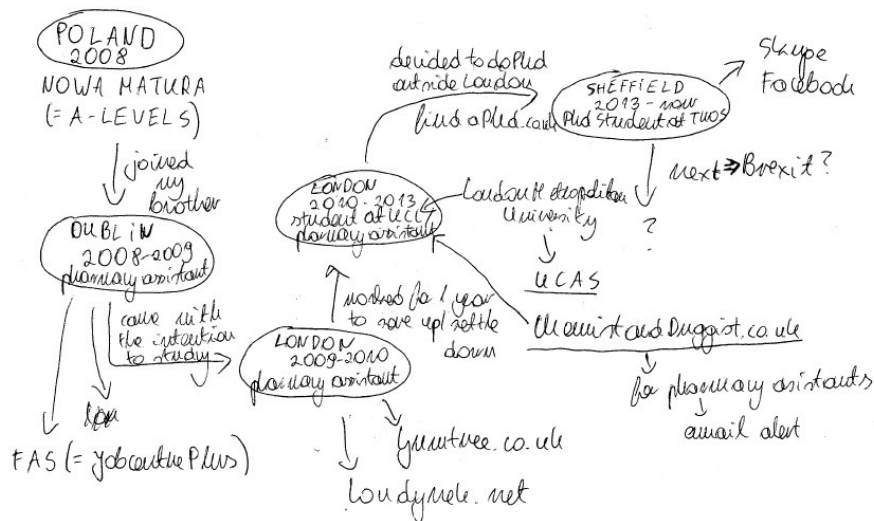 POLAND
2008
NOWA MATURA
(= A-LEVELS)
joined
my
brother
DUBLIN
2008-2009
pharmacy assistant
came with
the intention
to study
FAS (= Jobcentre Plus)
LONDON
2009-2010
pharmacy assistant
Gumtree.co.uk
Londynek.net
worked for 1 year
to save up/settle
down
LONDON
2010-2013
student at UCL/
pharmacy assistant
London Metropolitan
University
UCAS
ChemistandDruggist.co.uk
for pharmacy assistants
email alert
decided to do PhD
outside London
find a Phd.co.uk
SHEFFIELD
2013 - now
PhD student at TUOS
Skype
Facebook
next ⇒ Brexit?
?